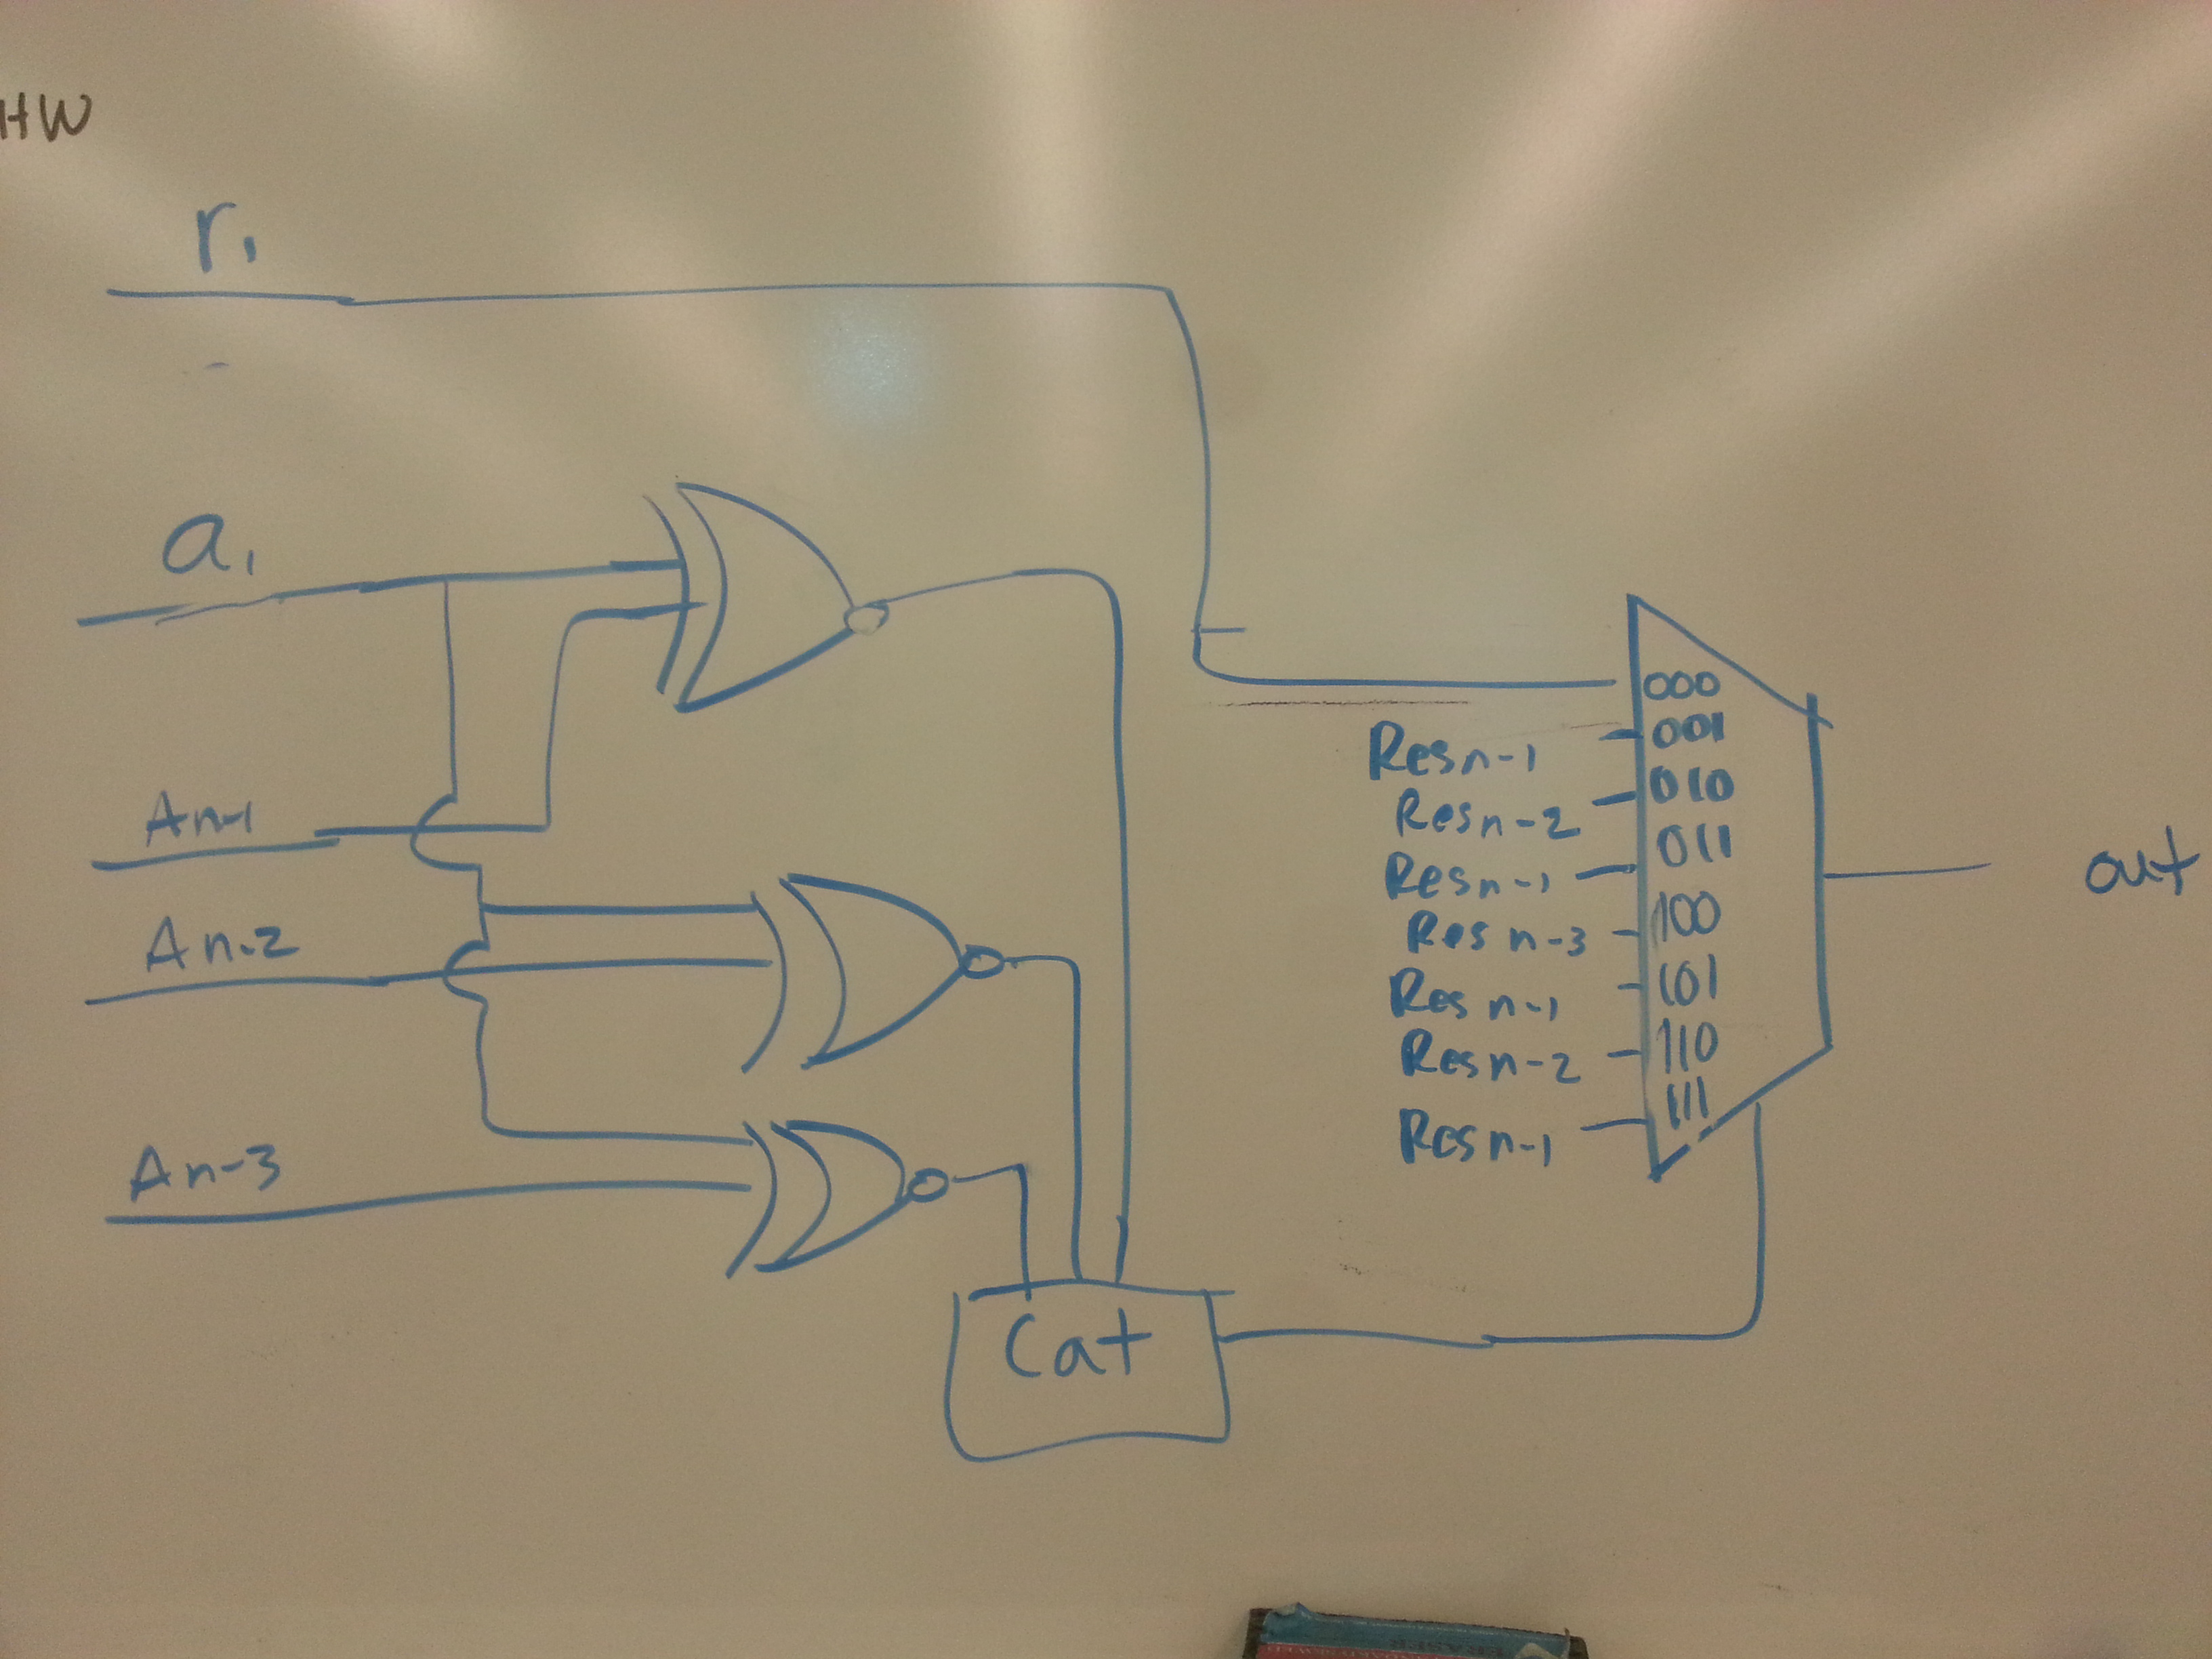 HW
r1
a1
An-1
An-2
An-3
Cat
000
Resn-1 001
Resn-2 010
Resn-1 011
Resn-3 100
Resn-1 101
Resn-2 110
Resn-1 111
out